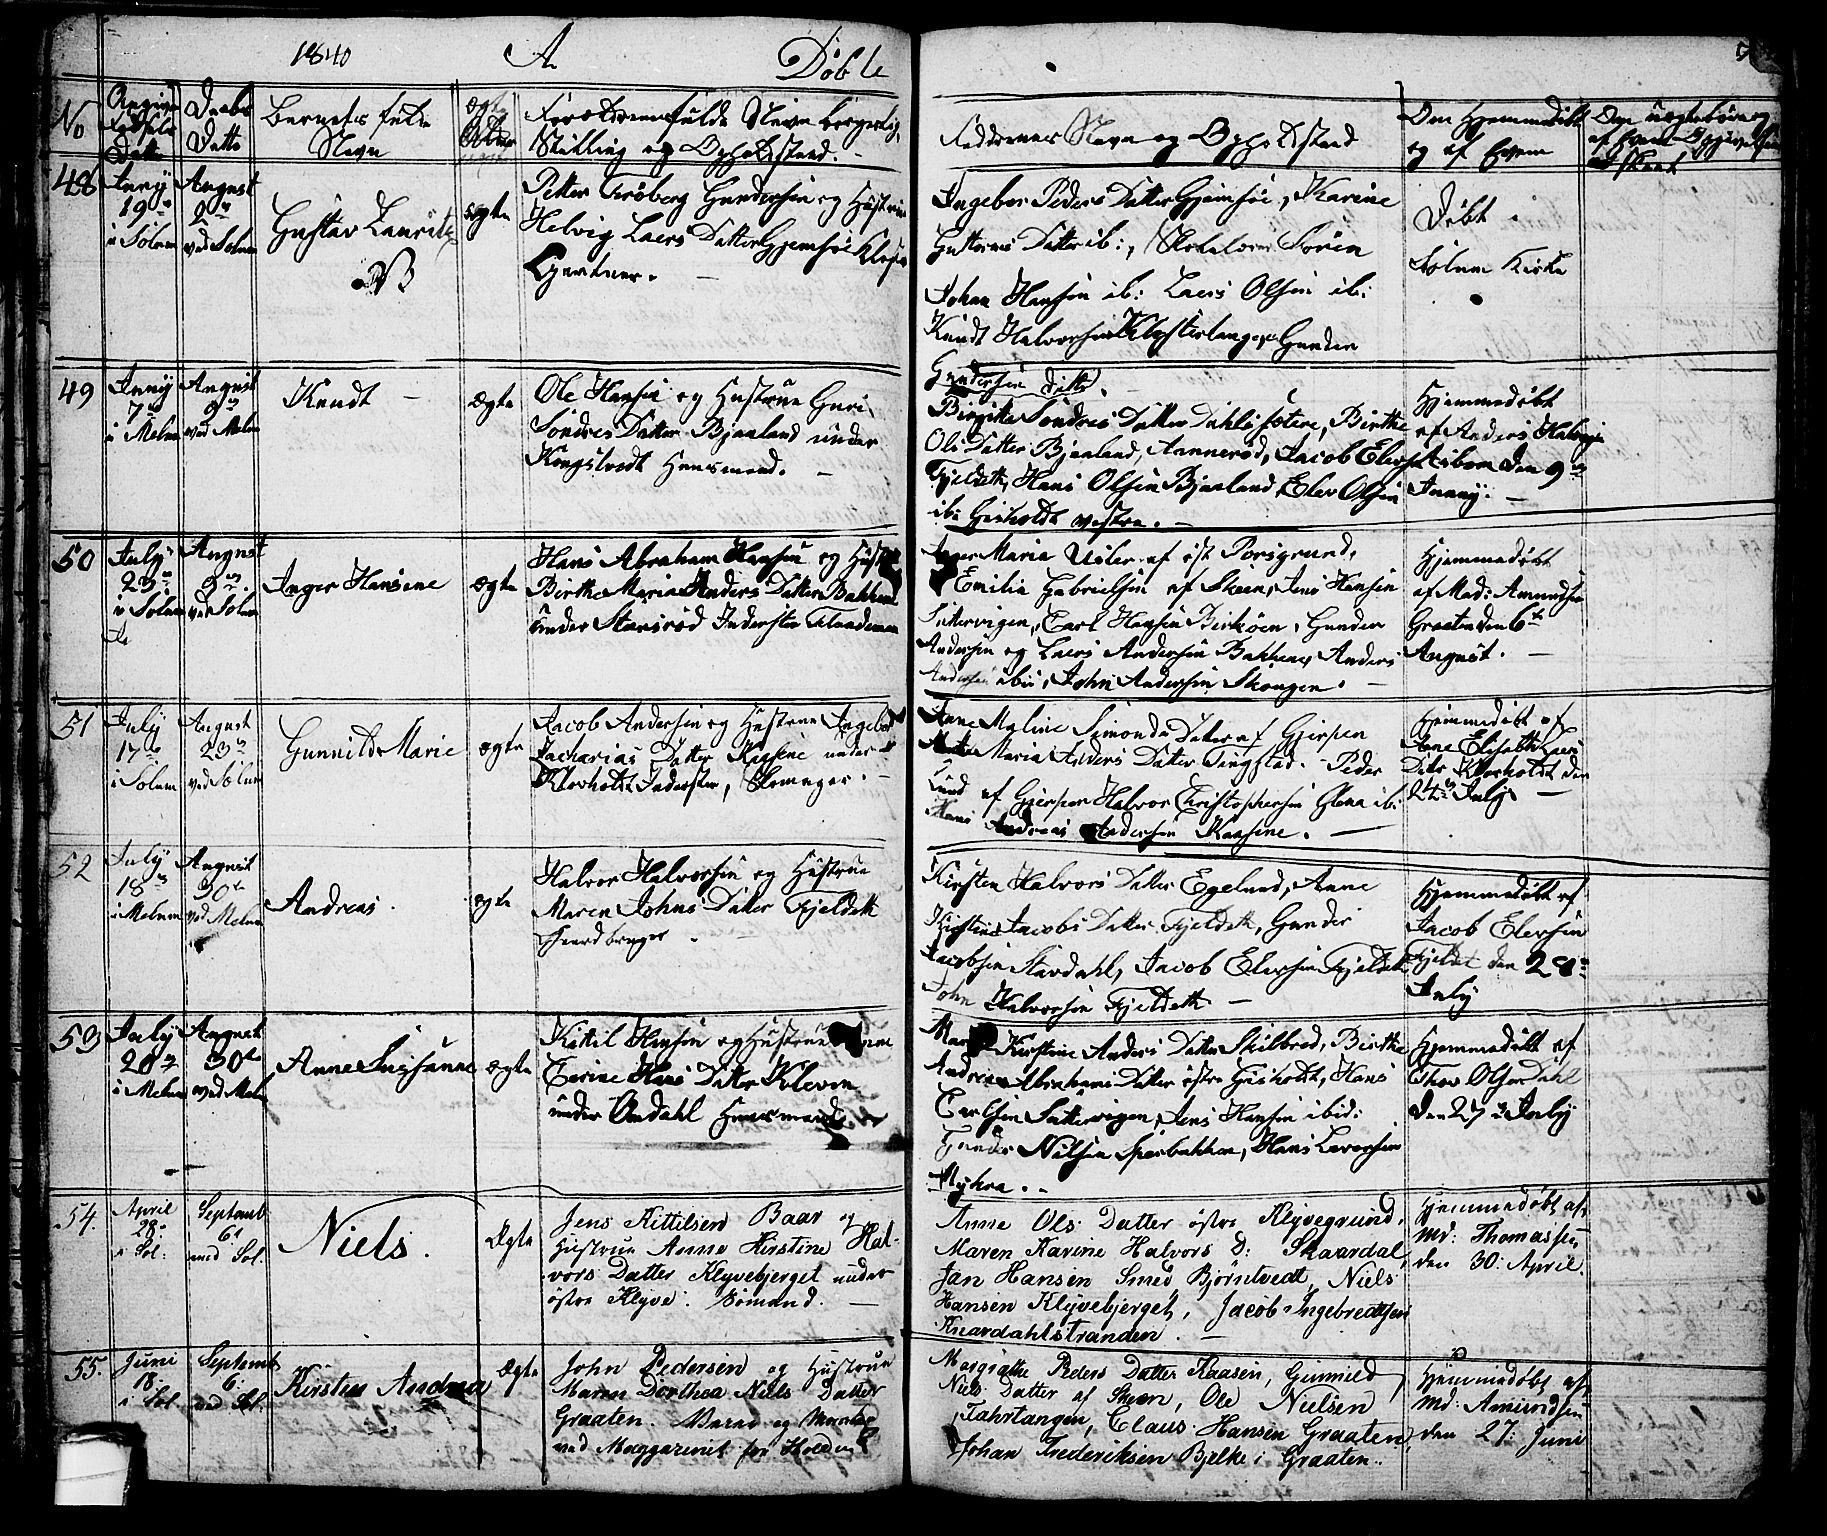 1840 A Døbte
No
Døbte
Datte
Barnets fulde
Navn
Ægte
Forældrenes fulde Navn borgerlig
Stilling og Opholdssted.
Faddernes Navn og Opholdssted
Om Hjemmedøbt
og af hvem
48
Juny
19de
i Solum
August
2den
ved Solum
Gustav Lauritz
ægte
Petter Frøberg Gundersen og Hustrue
Helvig Laers Datter Gjemsøe Kloster
Gjertner.
Ingebor Peders Datter Gjemsøe, Karine
Guttorms Datter ib:, Søren
Johan Hansen ib: Laers Olsen ib:
Knudt Halvorsen Klosterlange, Gunder
Gundersen ditto.
Døbt
Solum Kirke
49
Juny
7de
i Melum
August
9de
ved Melum
Knudt
Ægte
Ole Hansen og Hustrue Guri
Sondres Datter Bjaaland under
Kongstvedt Huusmand.
Birgitte Sondres Datter Dahlsfstere, Birthe
Ols Datter Bjaaland, Annerød, Jacob Elersen
Fjeldeth, Hans Olsen Bjaaland, Elev Olsen
ib: Gisholdt vestre.
Hjemmedøbt
af Anders Halvorsen
Aibom den 9de
Juny.
50
July
23de
i Solum
August
9de
ved Solum
Inger Hansine
ægte
Hans Abraham Hansen og Hustrue
Birthe Maria Anders Datter Bakken
under Stansrød Inderster
Inger Maria Usler af øst Porsgrund,
Emilia Gabrielsen af Skeen, Jens Hansen
Sætervigen, Carl Hansen Birkøen, Gunder
Andersen og Laers Andersen Bakken, Anders
Andersen ibid, John Andersen Skougen.
Hjemmedøbt
af Mad: Amundsen
Graaten den 6te
August.
51
July
17de
i Solum
August
23de
ved Solum
Gunnild Marie
ægte
Jacob Andersen og Hustrue Ingebor
Zacharias Datter Kasine under
Klovholdt Inderster,
Anne Maline Simonds Datter af Gjerpen
Maria Anders Datter Tingstad. Peder
Lund af Gjerpen Halvor Christophersen Glena ib:
Hans Andreas Andersen Kaasine.
Hjemmedøbt af
Ane Elisabeth Laers
Datter Klovholdt den
24de July
52
July
18de
i Melum
August
30te
ved Melum
Andreas
ægte
Halvor Halvorsen og Hustrue
Maren Johns Datter Fjeldeth
Gaardbruger.
Kirsten Halvors Datter Egelund, Anne
Kirstine Jacobs Datter Fjeldeth, Gunder
Jacobsen Stavdahl, Jacob Elersen Fjeldeth
John Halvorsen Fjeldeth
Hjemmedøbt af
Jacob Elersen
Fjeldet den 28de
July
53
July
20de
i Melum
August
30te
ved Melum
Anne Susanne
ægte
Kittil Hansen og Hustrue Anne
Terine Hans Datter Kleven
under Omdahl Huusmand
Maren Kirstine Anders Datter Skilbred, Birthe
Andrea Abrahams Datter østre Gisholdt, Hans
Carlsen Sætervigen, Jens Hansen ibid:
Gunder Nilsen Sperbakken, Hans Laversen
Nyhra.
Hjemmedøbt af
Thor Olsen Dahl
den 27de July
54.
April
28:
i Sol:
Septemb
6te
ved Sol.
Niels.
Ægte
Jens Kittilsen Baar og
Hustrue Anne Kirstine Hal-
vors Datter Klyvebjerget under
østre Klyve. Sømand.
Anne Ols Datter østre Klyvegrund,
Maren Karine Halvors D: Skaardal,
Jan Hansen Smed Bjørntvedt, Niels
Hansen Klyvebjerget, Jacob Ingebredtsen
Knardahlstranden.
Hjemmedøbt af
Md: Thomassen,
den 30: April.
55.
Juni
18.
i Sol
Septemb
6.
ved Sol.
Kirsten Andrea
Ægte
John Pedersen og Hustrue
Maren Dorthea Niels Datter
Graaten.
ved Maggazinet for Holden
Margrethe Peders Datter Kaasen, Gunnild
Niels Datter af Skeen, Ole Nielsen
Fahrtangen, Claus Hansen Graaten,
Johan Frederiksen Bjelke i Graaten.
Hjemmedøbt af
Md: Amundsen
den 27: Juni